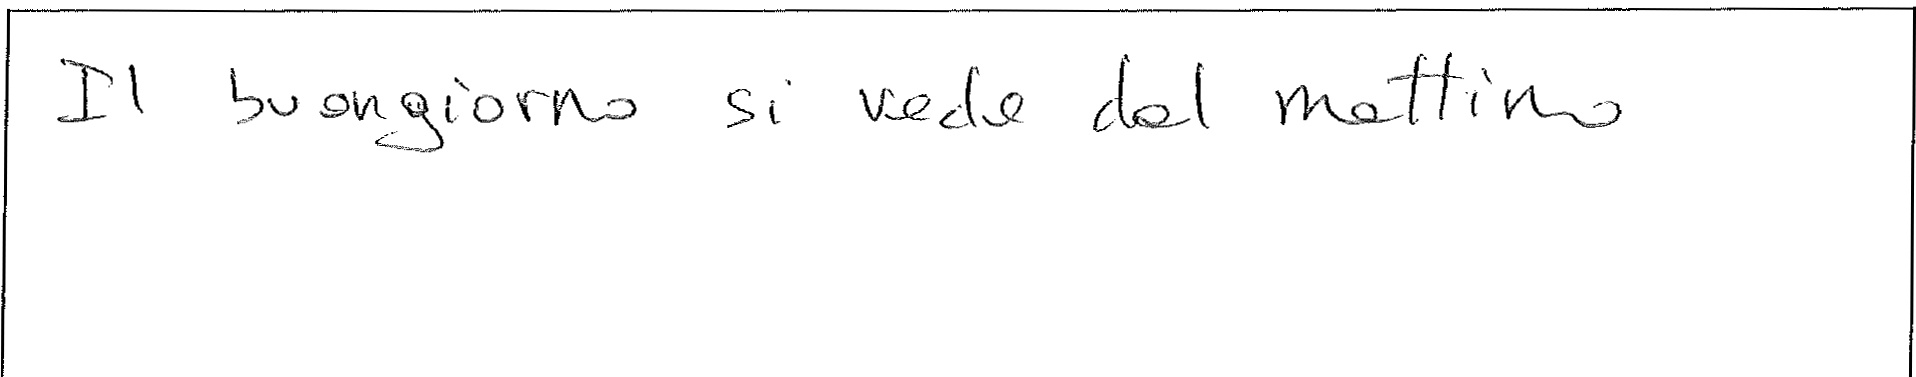 Il buongiorno si vede dal mattino